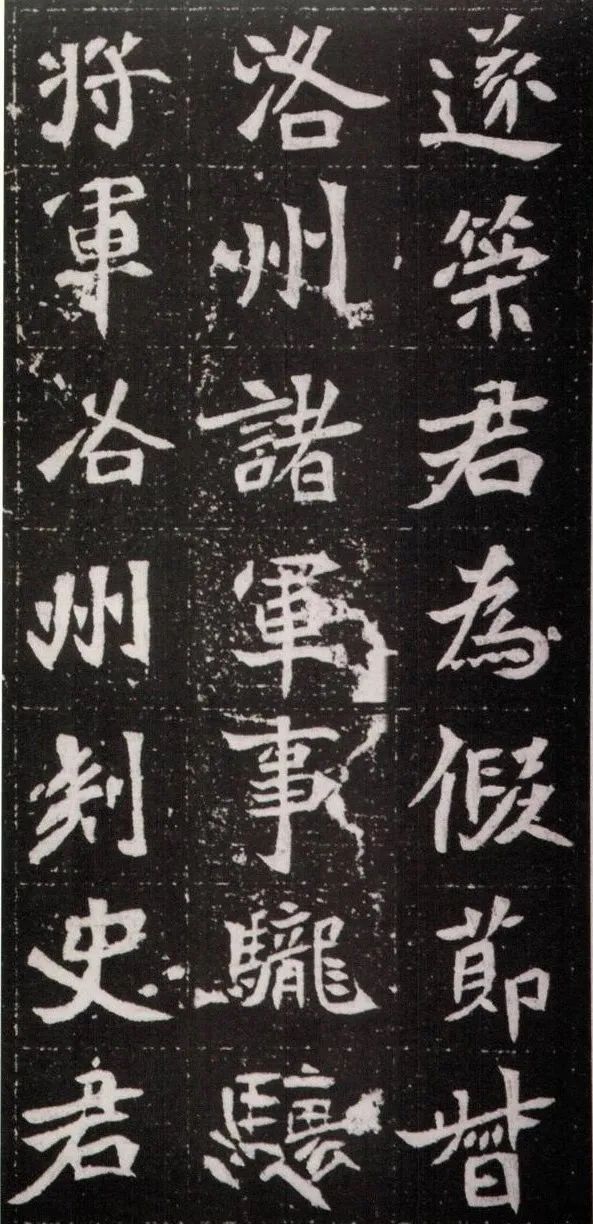 遂策君為假節督
洛州諸軍事䮾驤
將軍洛州刺史君